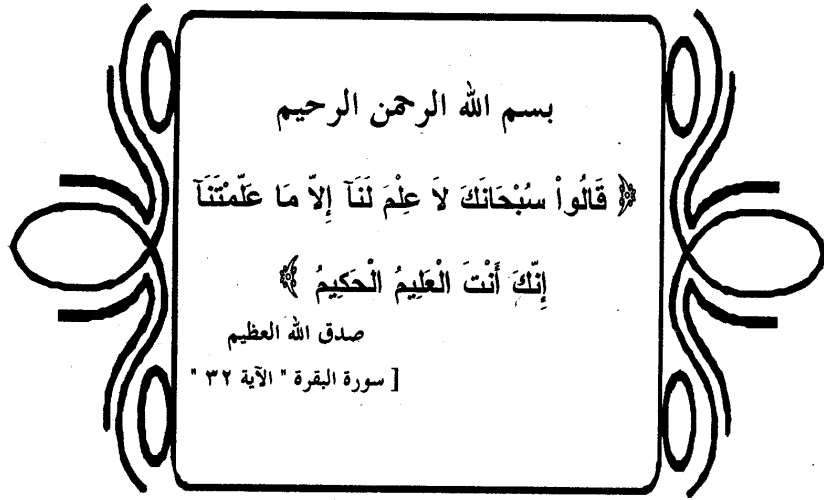 بسم الله الرحمن الرحيم
﴿ قَالُواْ سُبْحَانَكَ لاَ عِلْمَ لَنَآ إِلاّ مَا عَلّمْتَنَآ
إِنّكَ أَنْتَ الْعَلِيمُ الْحَكِيمُ ﴾
صدق الله العظيم
[ سورة البقرة " الآية ٣٢ "